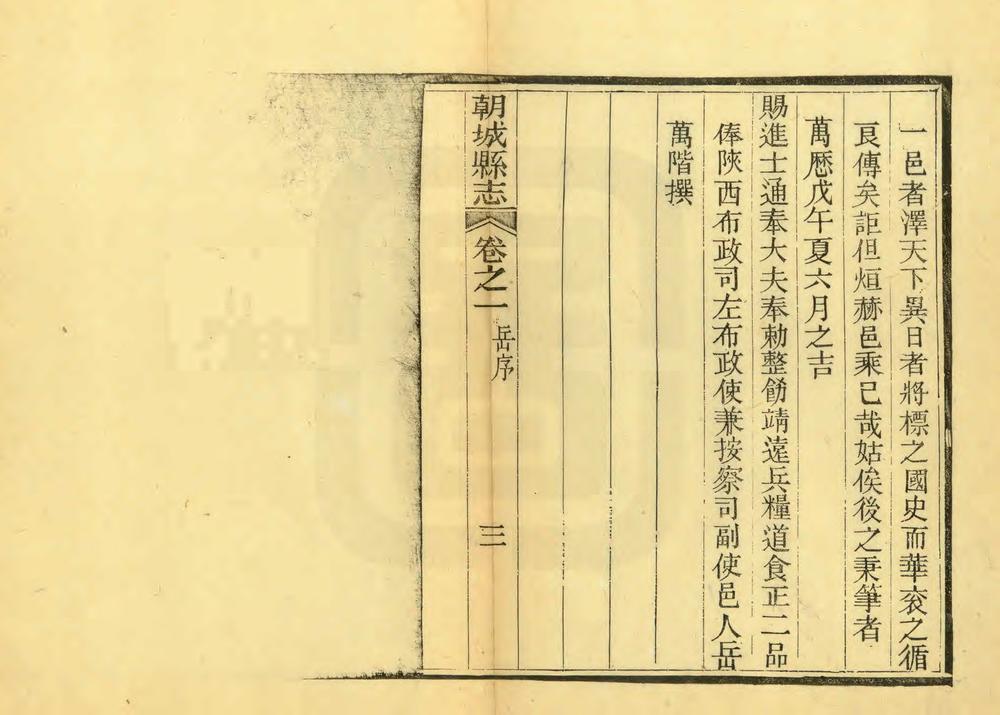 一邑者澤天下異日者將標之國史而華衮之循
良傳矣詎但烜赫邑乘已哉姑俟後之秉筆者
萬厯戊午夏六月之吉
賜進士通奉大夫奉勅整飭靖遠兵糧道食正二品
俸陝西布政司左布政使兼按察司副使邑人岳
萬階撰
朝城縣志 卷之一 岳序 三